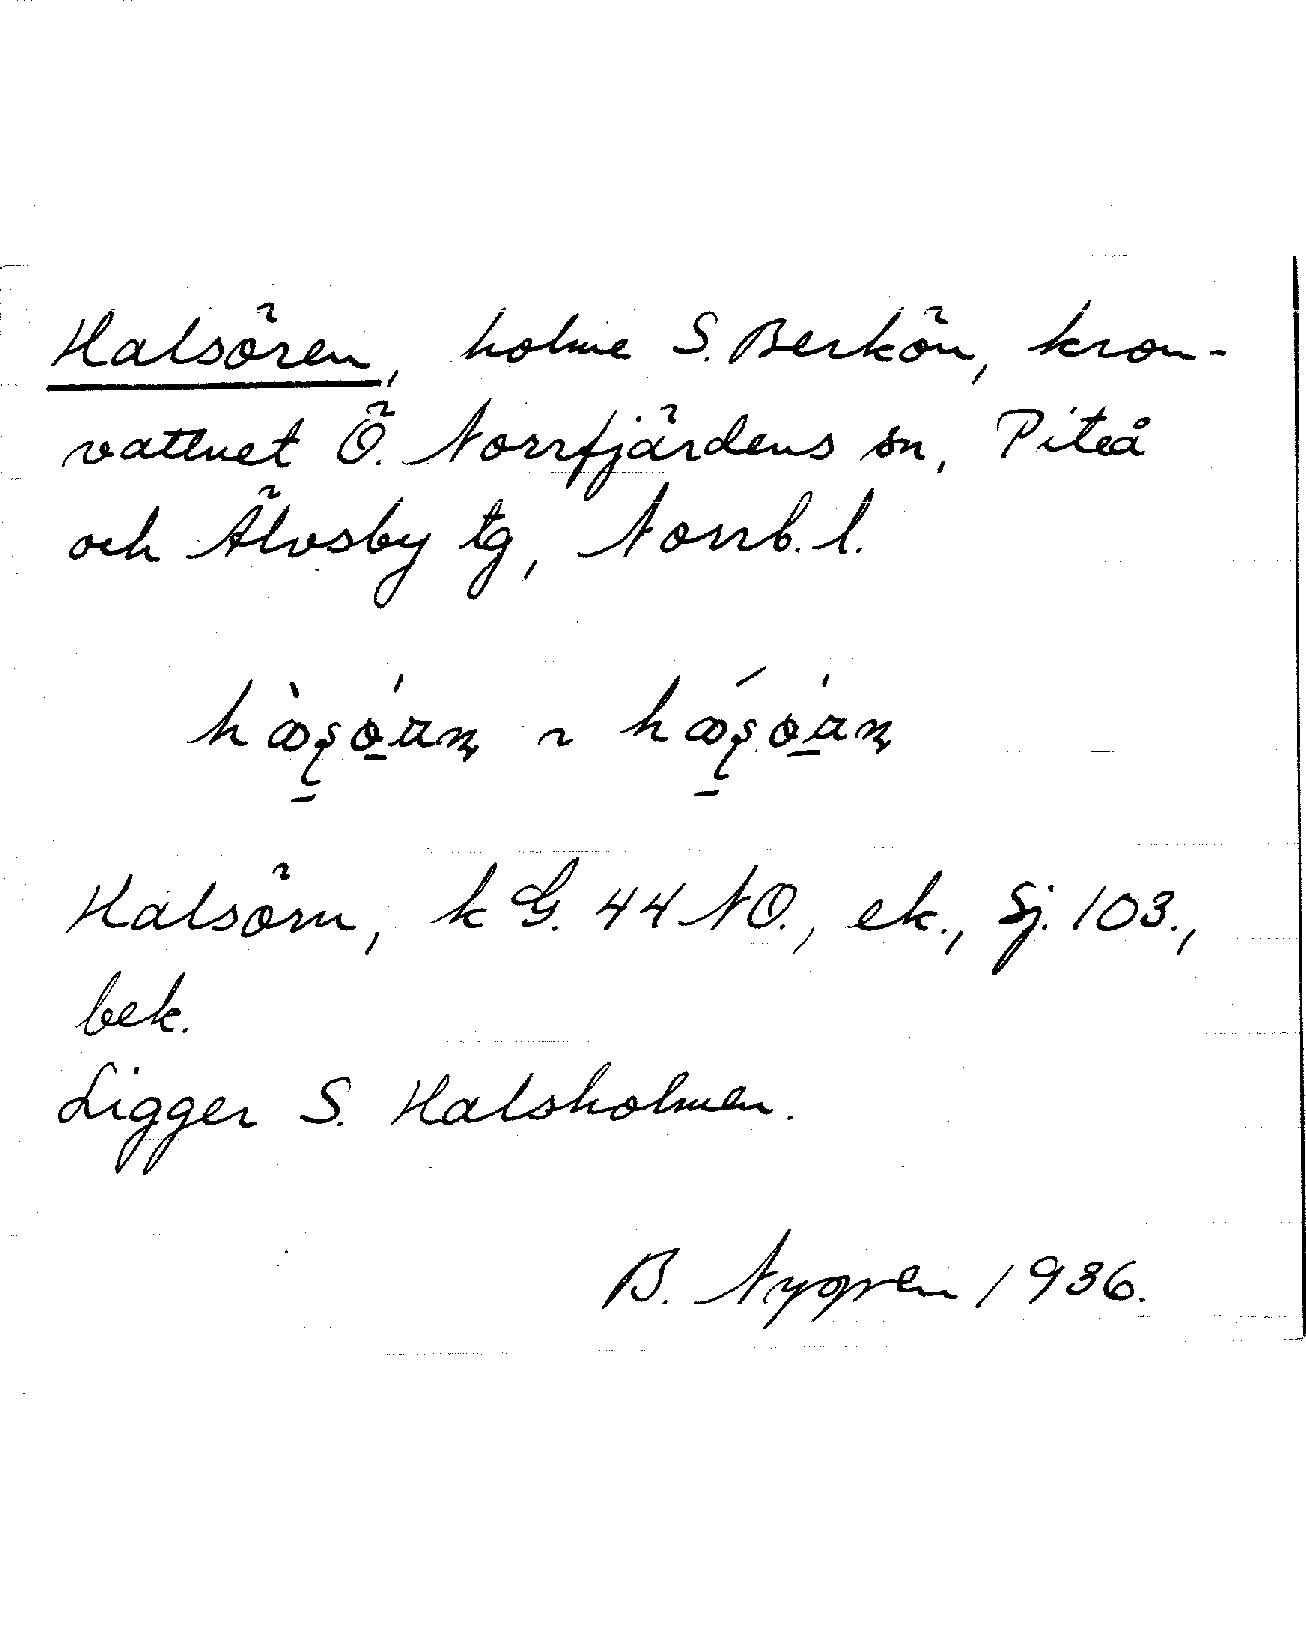 Halsören, holme S. Berkön, kron-
vattnet Ö. Norrfjärdens sn, Piteå
och Älvsby tg, Norrb. l.
Halsörn, k G. 44 NO., ek., Sj. 103.,
bek.
Ligger S. Halsholmen.
B. Nygren 1936.